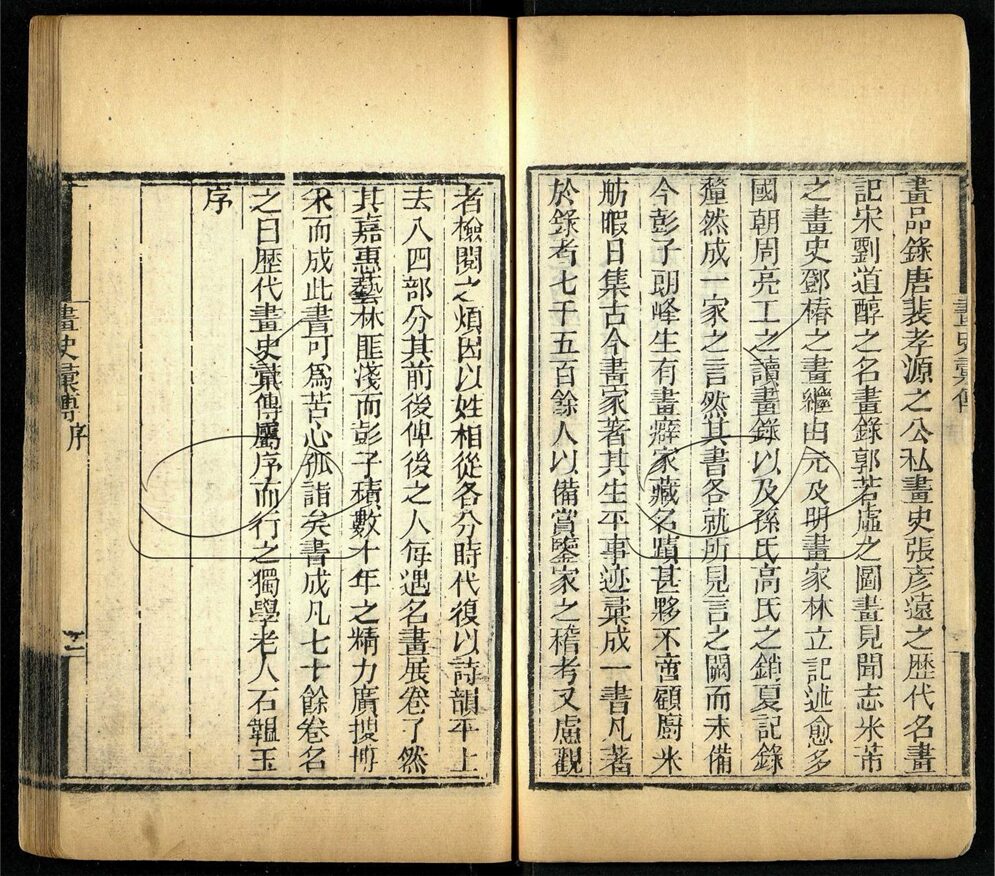 畫品錄唐裴孝源之公私畫史張彥遠之歷代名畫
記宋劉道醇之名畫錄郭若虛之圖畫見聞志米芾
之畫史鄧椿之畫繼由元及明畫家林立記述愈多
國朝周亮工之讀畫錄以及孫氏高氏之銷夏記錄
釐然成一家之言然其書各就所見言之闕而未備
今彭子朗峰生有畫癖家藏名蹟甚夥不啻顧廚米
舫暇日集古今畫家著其生平事迹彚成一書凡著
於錄者七千五百餘人以備賞鑒家之稽考又慮觀
畫史彚傳
者檢閱之煩因以姓相從各分時代復以詩韻平上
去入四部分其前後俾後之人每遇名畫展卷了然
其嘉惠藝林匪淺而彭子積數十年之精力廣搜博
采而成此書可爲苦心孤詣矣書成凡七十餘卷名
之曰歷代畫史彚傳屬序而行之獨學老人石韞玉
序
畫史彚傳 序
二